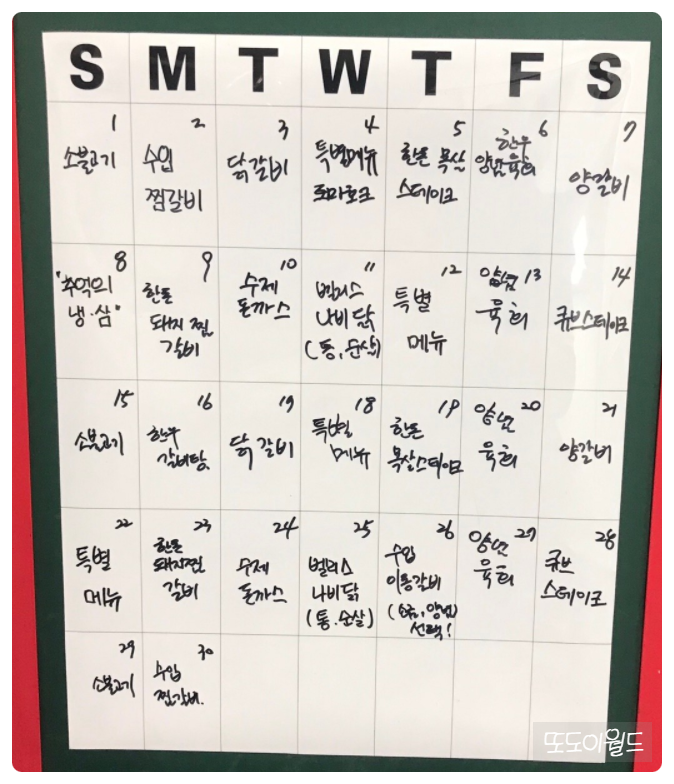 S M T W T F S
1 2 3 4 5 6 7
소불고기
수입
찜갈비
닭갈비
특별메뉴
토마호크
한돈 목살
스테이크
한우
양념육회
양갈비
8 9 10 11 12 13 14
"추억의
냉·삼"
한돈
돼지 찜
갈비
수제
돈까스
벌리스
나비 닭
(통, 순살)
특별
메뉴
양념
육회
큐브스테이크
15 16 19 18 19 20 21
소불고기
한우
갈비탕
닭갈비
특별
메뉴
한돈
목살스테이크
양념
육회
양갈비
22 23 24 25 26 27 28
특별
메뉴
한돈
돼지찜
갈비
수제
돈까스
벌리스
나비닭
(통.순살)
수입
이동갈비
(소금, 양념)
선택!
양념
육회
큐브
스테이크
29 30
소불고기
수입
찜갈비.
또도아월드